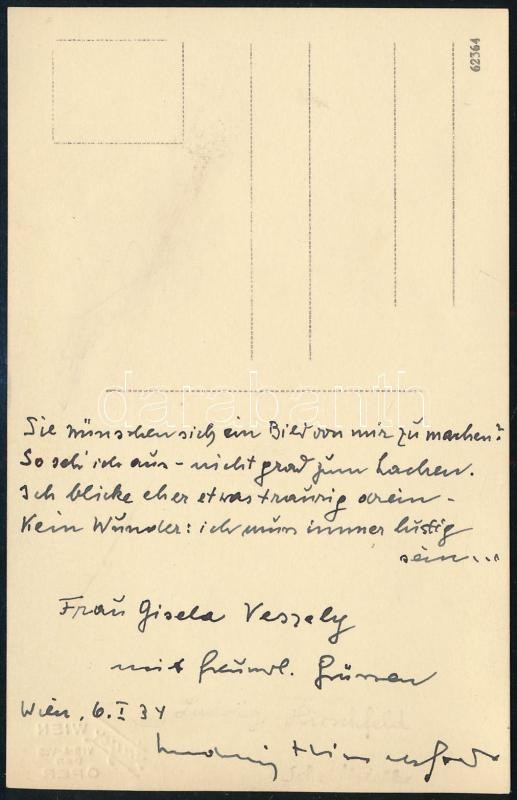 62364
darabanth
Sie wünschen sich ein Bild von mir zu machen?
So seh' ich aus - nicht grad zum Lachen.
Ich blicke eher etwas traurig drein -
Kein Wunder: ich muss immer lustig
sein...
Frau Gisela Veszely
mit freundl. Grüssen
Wien, 6. I 34
Ludwig Hirschfeld
Ludwig Hirschfeld
WIEN
OPER